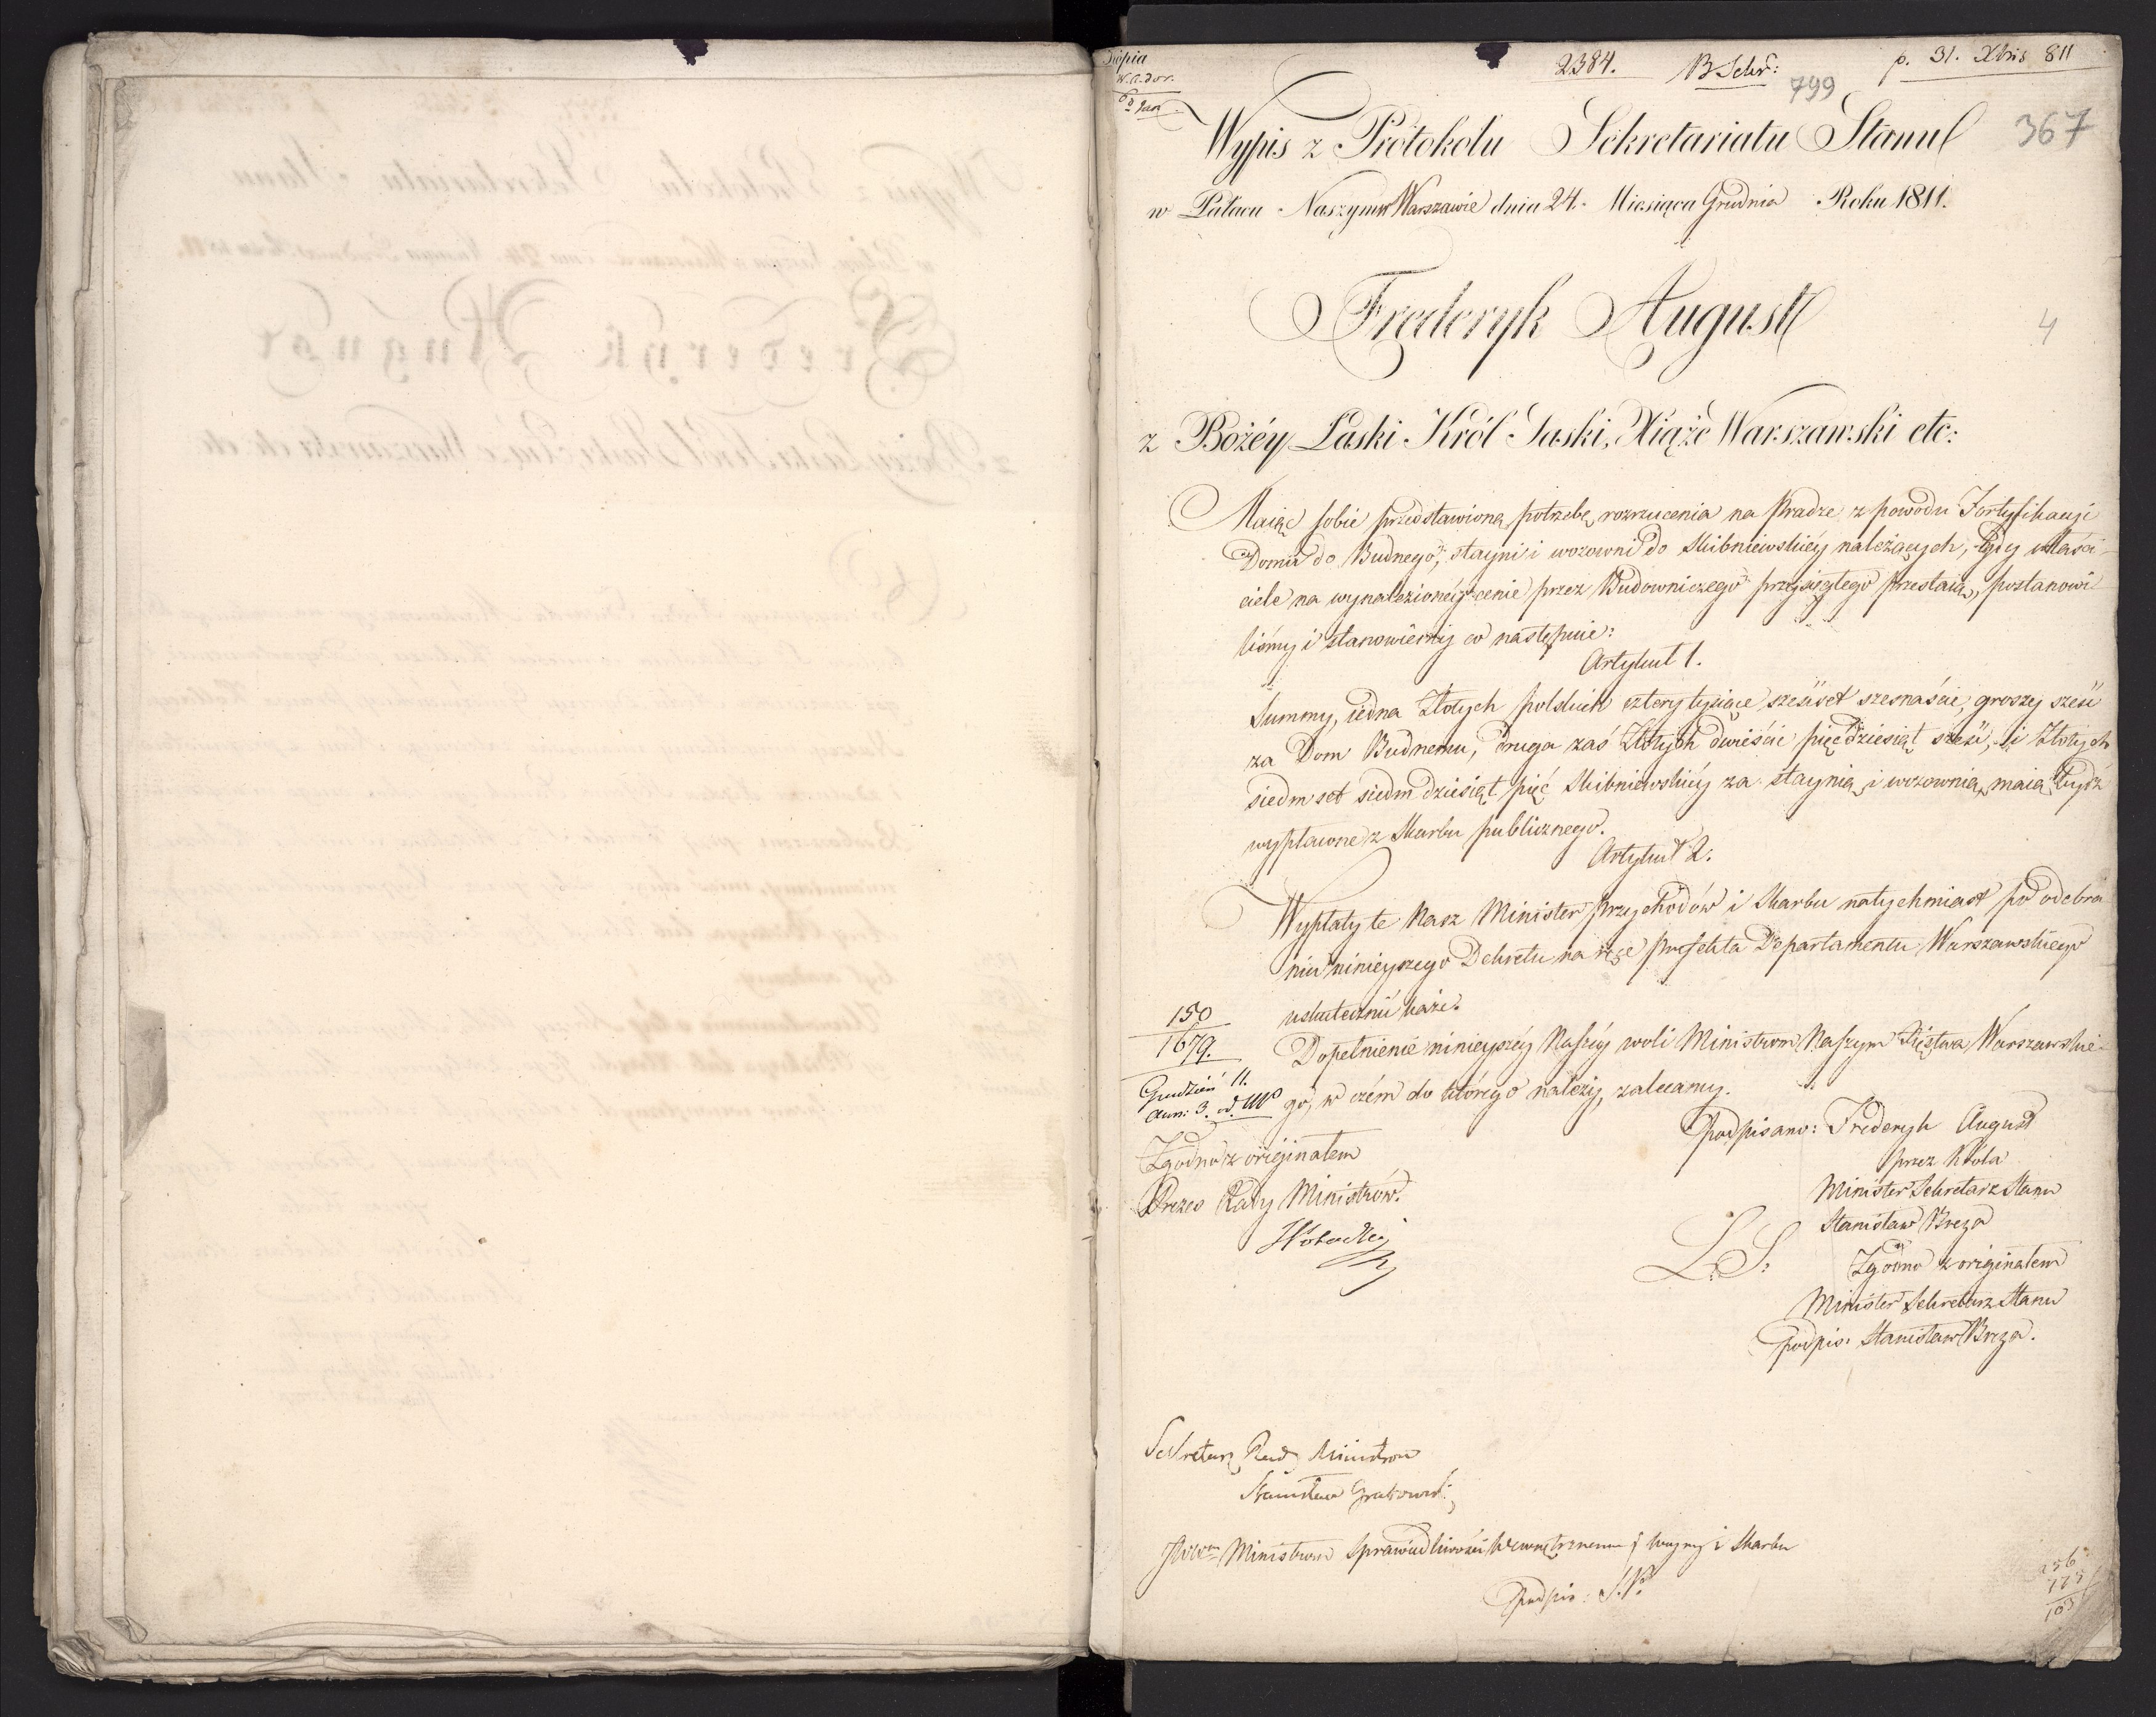 Kopia
2384.
p. 31. Xbris 811
799
367
Wypis z Protokołu Sekretariatu Stanu
w Pałacu Naszym w Warszawie dnia 24. Miesiąca Grudnia Roku 1811.
Frederyk August
4
z Bożéy Łaski Król Saski, Xiążę Warszawski etc:
Maiąc sobie przedstawioną potrzebę rozrzucenia na Pradze z powodu Fortyfikacyi
Domu do Budnego, stayni i wozowni do Skibniewskiéy należących, gdy właści-
ciele na wynalezionéy cenie przez Budowniczego przysięgłego przestaią, postanowi-
liśmy i stanowiemy co następuie:
Artykuł 1.
Summy, iedna Złotych polskich cztery tysiące sześćset szesnaście, groszy sześć
za Dom Budnemu, druga zaś Złotych dwieście pięćdziesiąt sześć, i Złotych
siedmset siedmdziesiąt pięć Skibniewskiéy za staynią i wozownią, maią bydź
wypłacone z Skarbu publicznego.
Artykuł 2.
Wypłaty te Nasz Minister Przychodów i Skarbu natychmiast po odebra-
niu ninieyszego Dekretu na ręce Prefekta Departamentu Warszawskiego
uskutecznić każe.
150
1679.
Dopełnienie ninieyszéy Naszéy woli Ministrom Naszym Xięstwa Warszawskie-
Grudzień 11.
go, w czém do którego należy, zalecamy.
Podpisano: Frederyk August
Zgodno z originałem
przez Króla
Prezes Rady Ministrów.
Minister Sekretarz Stanu
Stanisław Breza
L. S.
Zgodno z originałem
Minister Sekretarz Stanu
Podpis: Stanisław Breza.
Sekretarz Rady Ministrow
Stanisław Grabowski
Ministrom Sprawiedliwości Wewnętrznemu Woyny i Skarbu
Podpis:
256
775